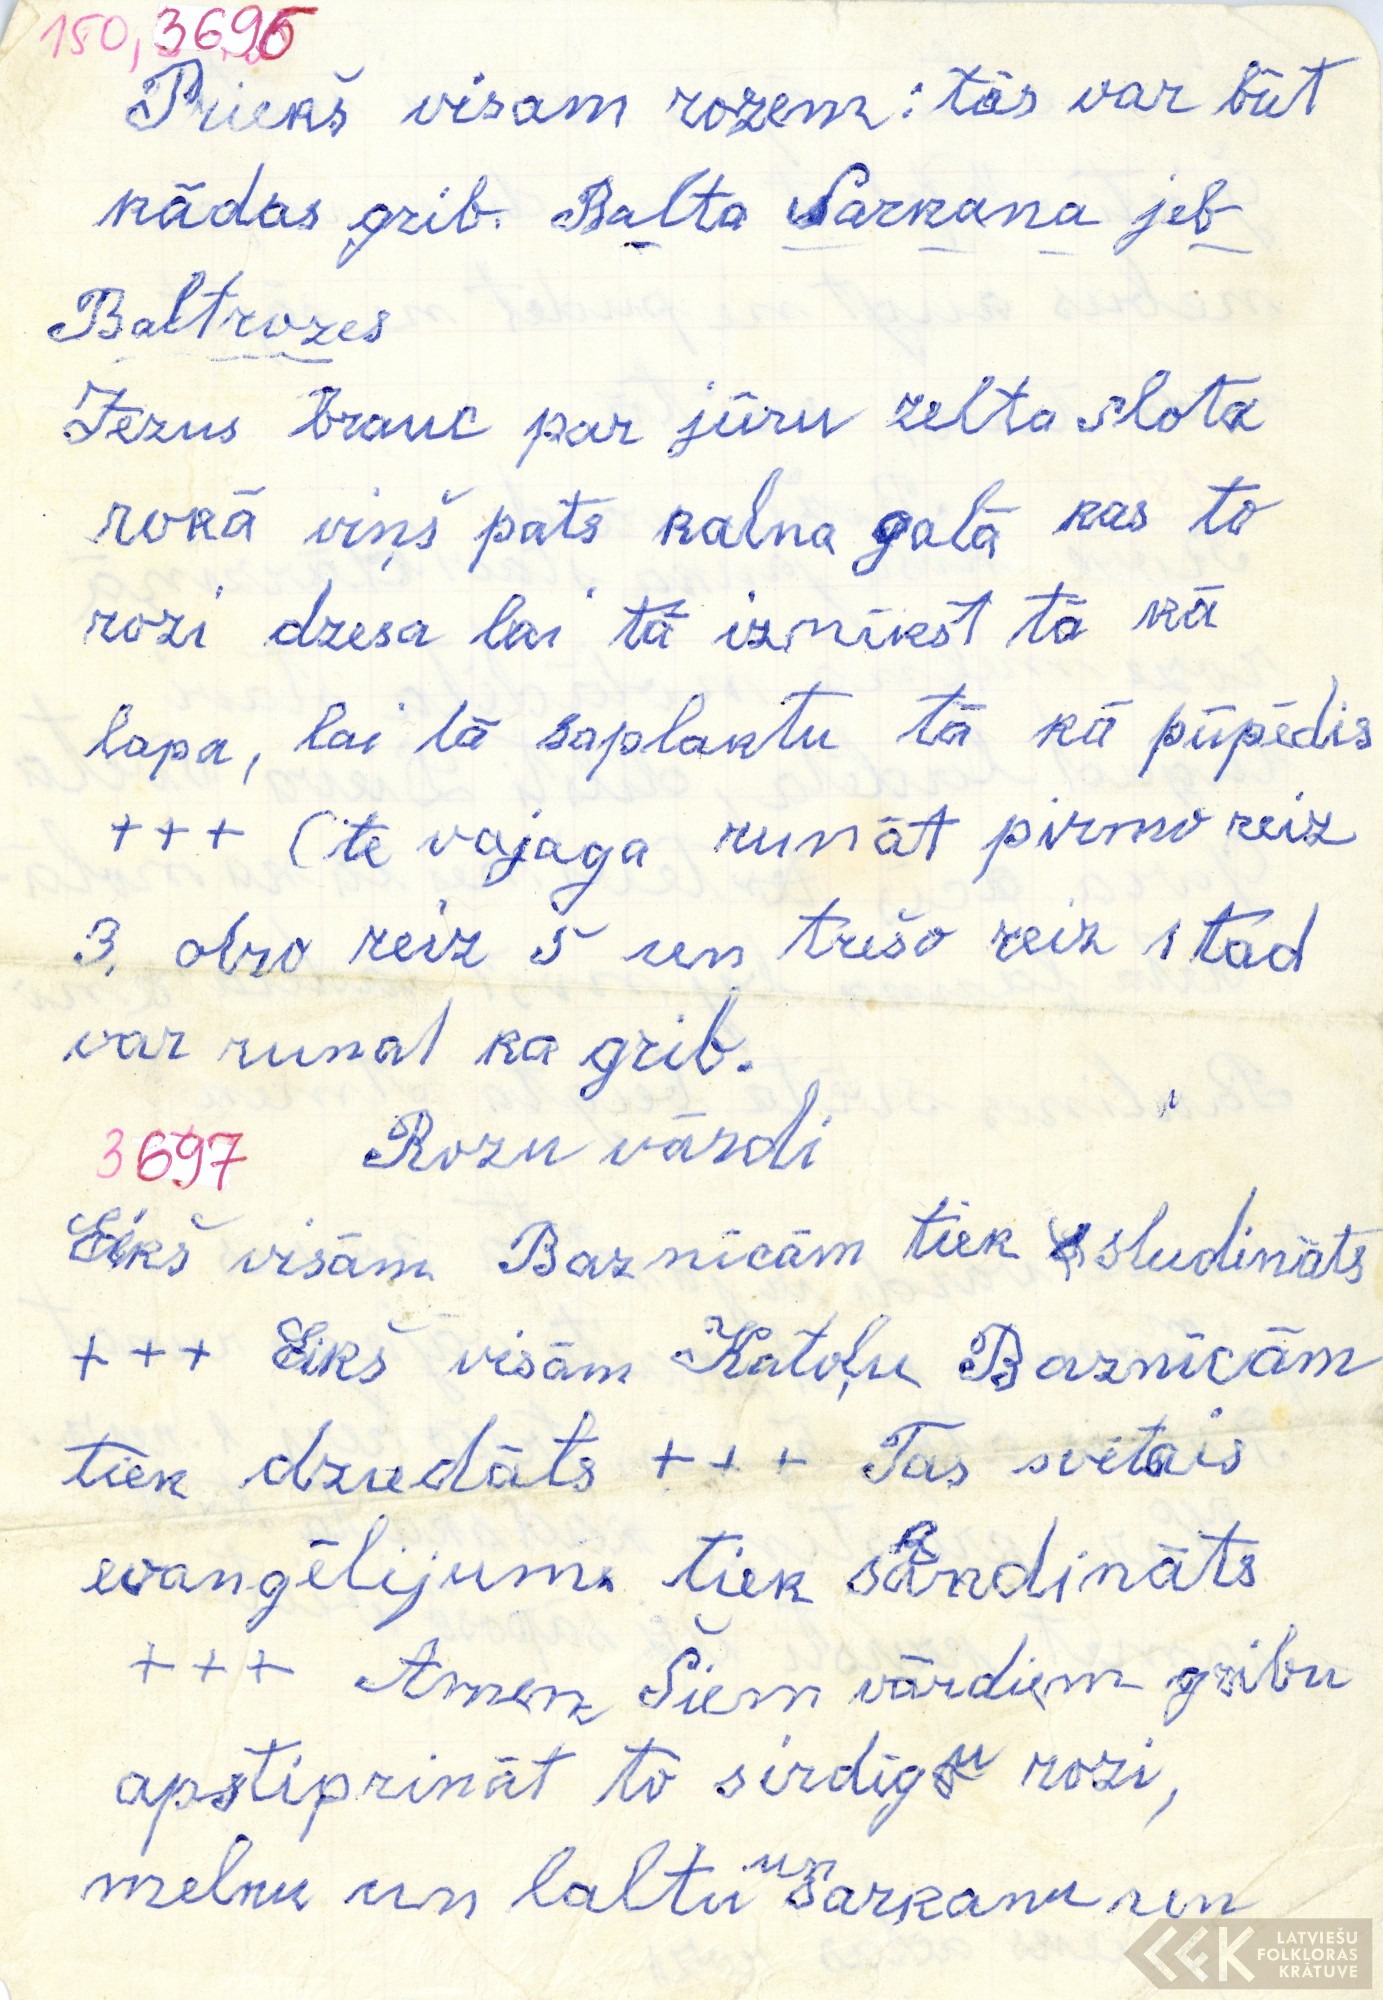 150,3696
Priekš visam rozem: tās var būt
kādas grib. Balta Sarkana jeb
Baltrozes
Jezus brauc par jūru zelta slota
rokā viņš pats kalna galā kas to
rozi dzesa lai tā iznīkst tā kā
lapa, lai tā saplaktu tā kā pūpēdis
+++ (te vajaga runāt pirmo reiz
3, otro reiz 5 un trešo reiz 1 tad
var runat ka grib.
3697 Rozu vārdi
Eikš visām Baznīcām tiek sludināts
+++ Eikš visām Katoļu Baznīcām
tiek dziedāts +++ Tas svētais
evangēlijums tiek sarkdināts
+++ Amen Šiem vārdiem gribu
apstiprināt to sirdīgu rozi,
melnu un laltu un sarkanu un
LATVIEŠU
FOLKLORAS
KRĀTUVE